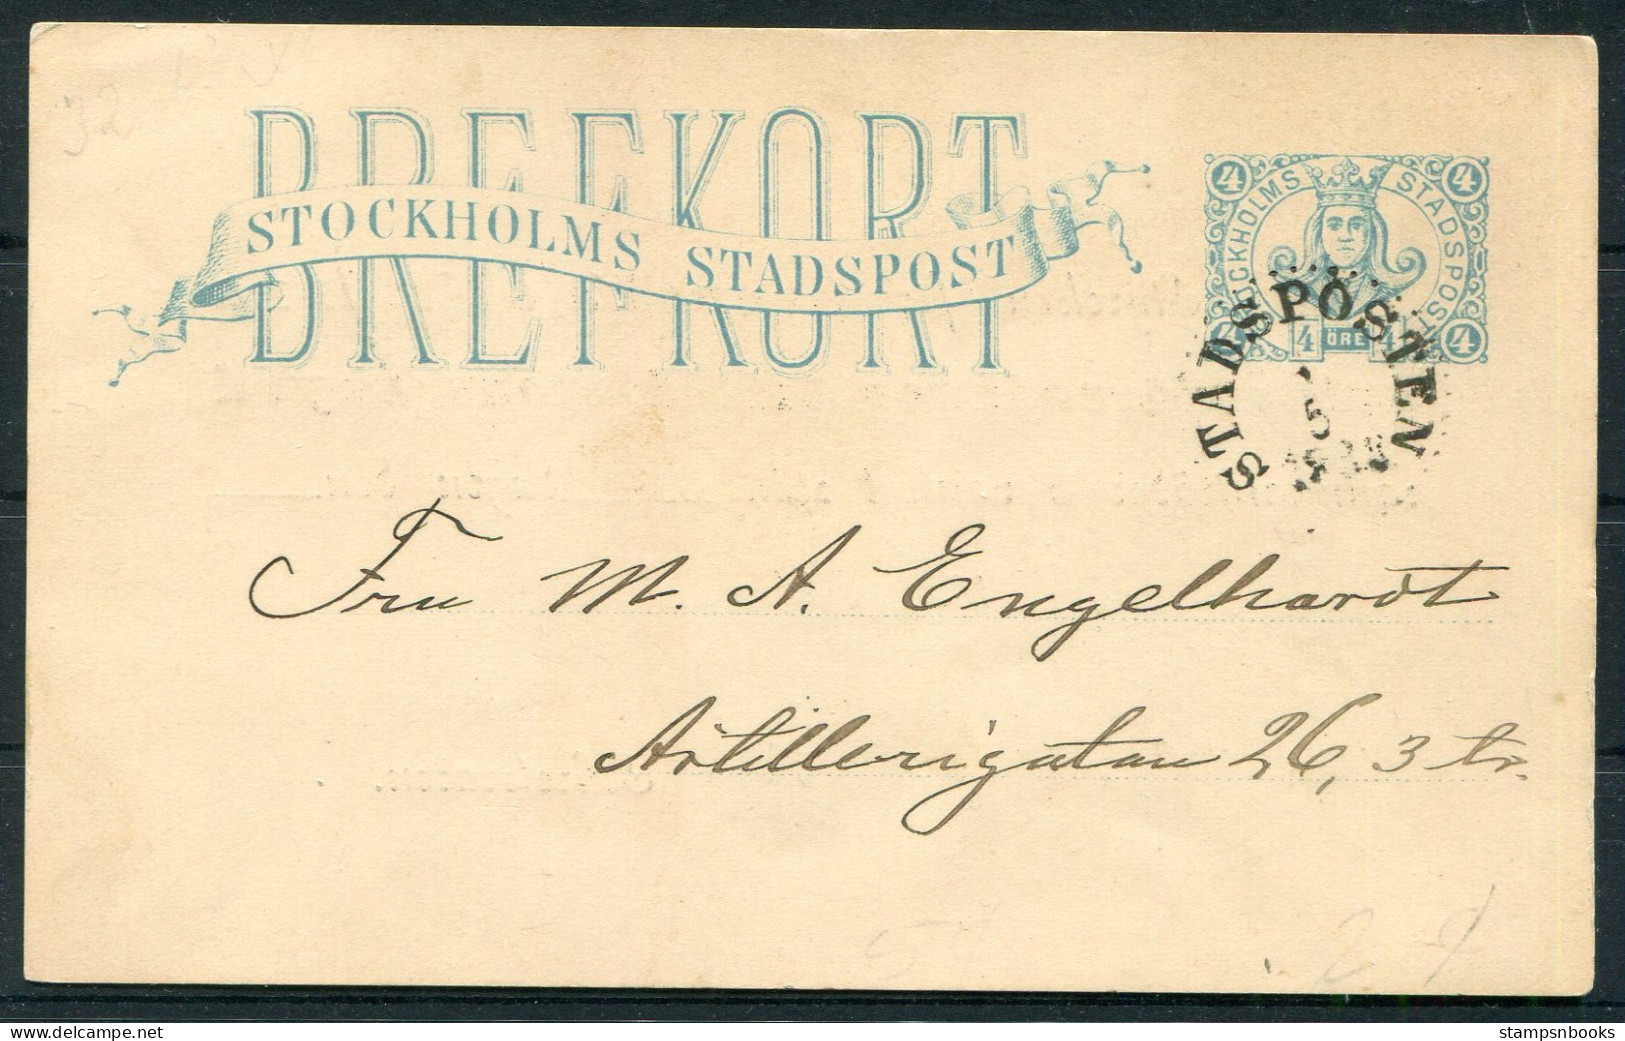 32
BREFKORT
STOCKHOLMS STADSPOST
4 4
STOCKHOLMS STADSPOST
4 4 ÖRE 4 4
STADSPOSTEN
5
Fru M. A. Engelhardt
Artillerigatan 26, 3 tr.
stampsnbooks